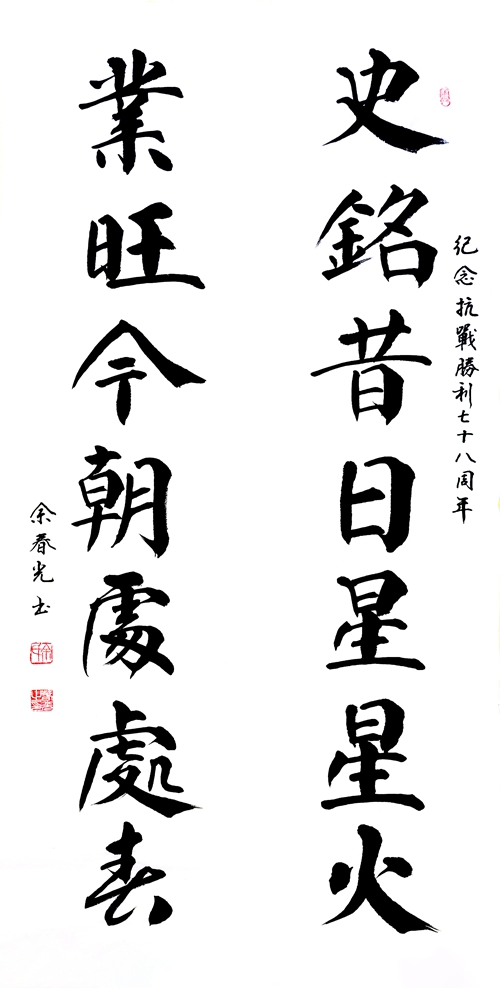 紀念抗戰勝利七十八周年
史銘昔日星星火
業旺今朝處處春
余春光书